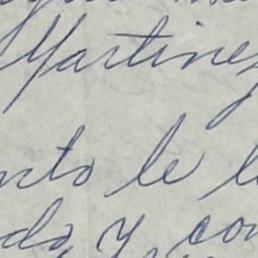 Martinez
nto le l
do, y con